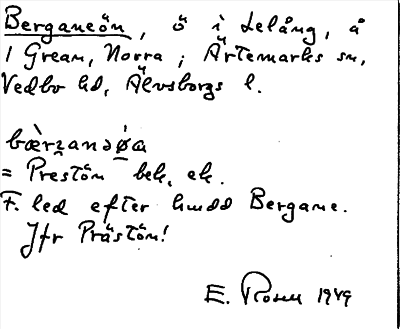 Berganeön, ö i Lelång, å
1 Grean, Norra; Ärtemarks sn,
Vedbo hd, Älvsborgs l.
bæ̀rganəǿa
= Prestön bek. ek.
F. led efter hmdd Bergane.
Jfr Prästön!
E. Rosell 1949